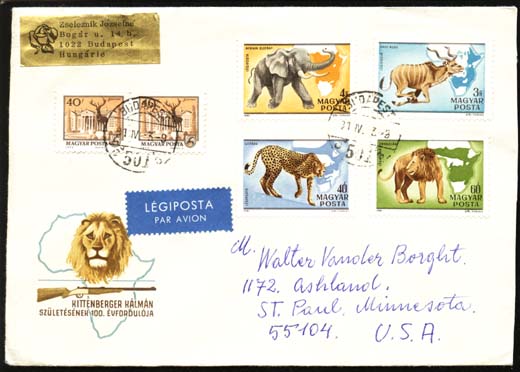 Zselezník Józsefné
Bogár u. 14 b.
1022 Budapest
Hungária
40f
MAGYAR POSTA
MAGYAR POSTA
4Ft
MAGYAR POSTA
3Ft
MAGYAR POSTA
40f
MAGYAR POSTA
60f
MAGYAR POSTA
BUDAPEST
501
LÉGIPOSTA
PAR AVION
KITTENBERGER KÁLMÁN
SZÜLETÉSÉNEK 100. ÉVFORDULÓJA
M. Walter Vander Borght.
1172. Ashland.
ST. Paul, Minnesota.
55104. U.S.A.